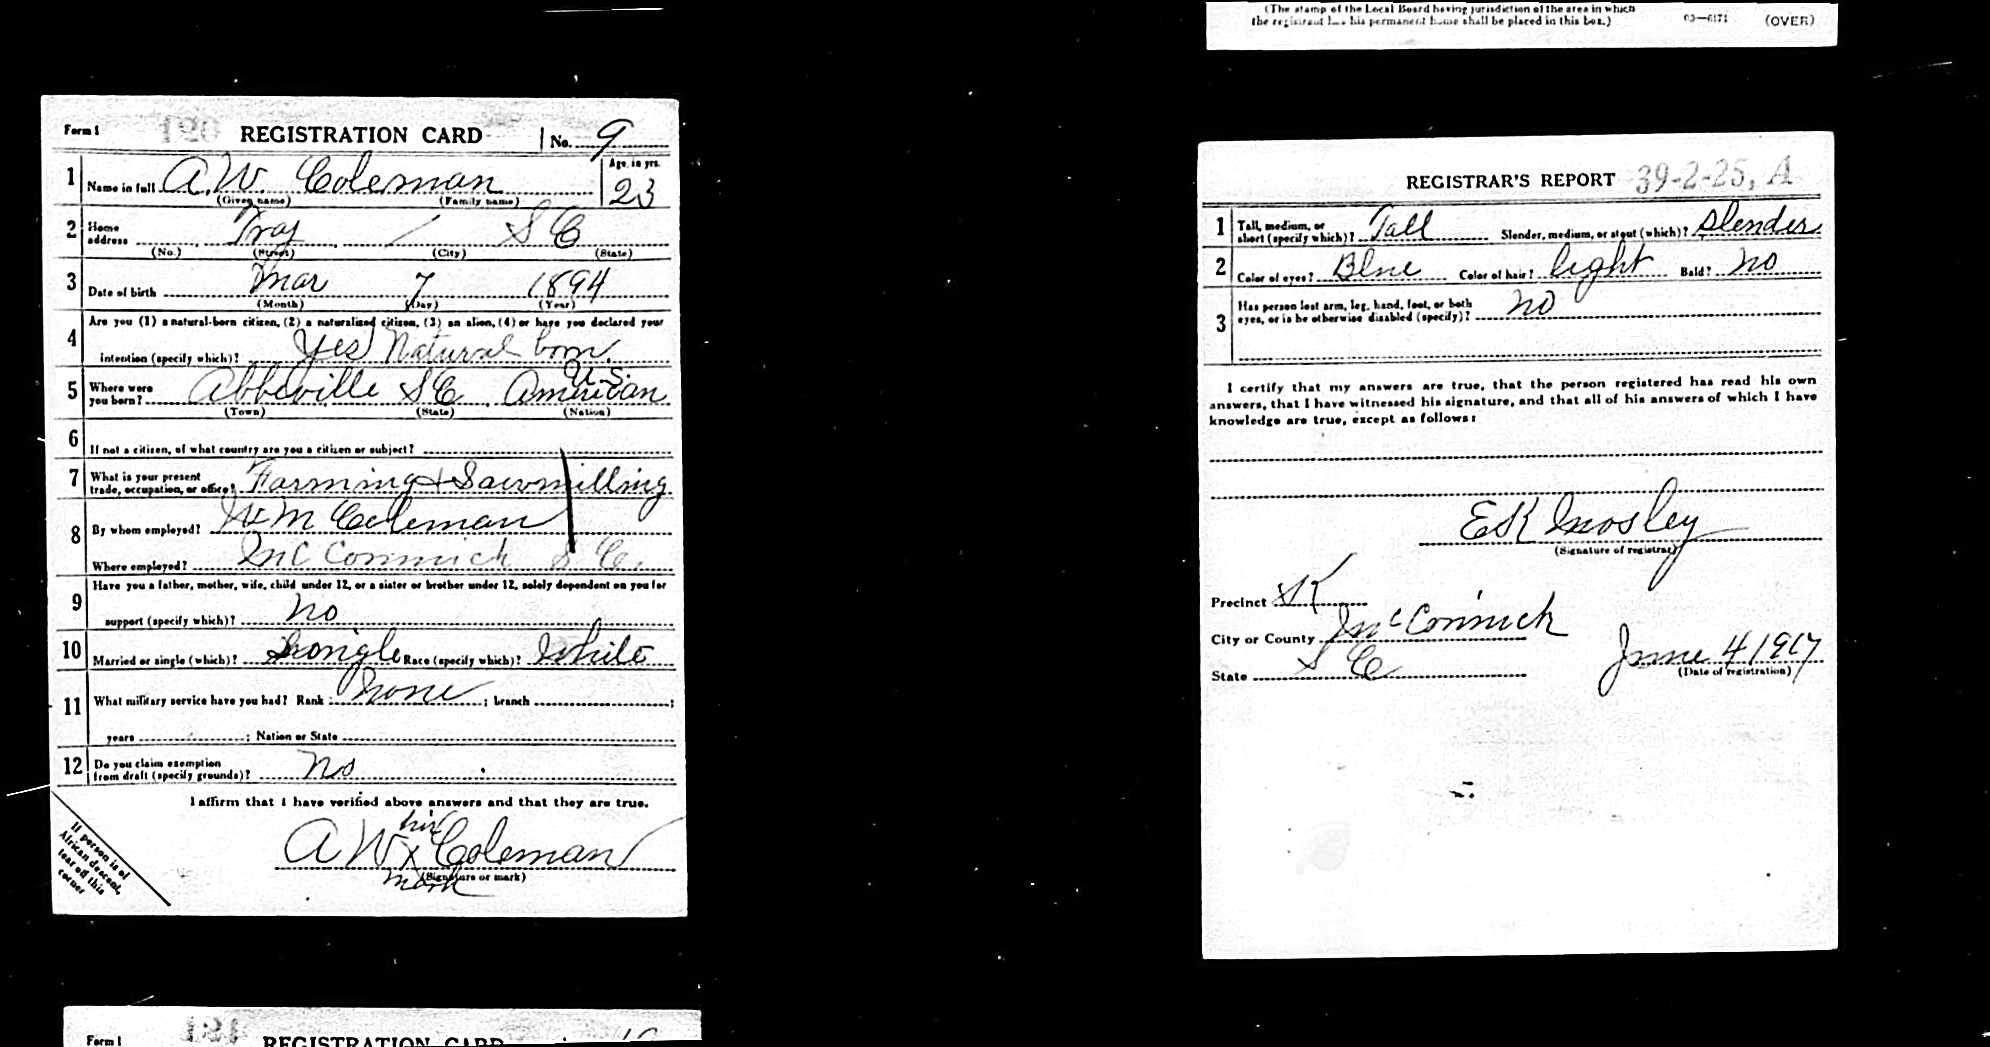 (The stamp of the Local Board having jurisdiction of the area in which
the registrant has his permanent home shall be placed in this box.) 03—6171 (OVER)
Form 1 REGISTRATION CARD No. 9
1 Name in full A.W. Coleman Age, in yrs. 23
(Given name) (Family name)
2 Home address Troy / S C
(No.) (Street) (City) (State)
3 Date of birth Mar 7 1894
(Month) (Day) (Year)
4 Are you (1) a natural-born citizen, (2) a naturalized citizen, (3) an alien, (4) or have you declared your
intention (specify which)? Yes Natural born
U.S.
5 Where were you born? Abbeville S C American
(Town) (State) (Nation)
6 If not a citizen, of what country are you a citizen or subject?
7 What is your present trade, occupation, or office? Farming + Sawmilling
8 By whom employed? W M Coleman
Where employed? McCormick S C.
9 Have you a father, mother, wife, child under 12, or a sister or brother under 12, solely dependent on you for
support (specify which)? No
10 Married or single (which)? Single Race (specify which)? White
11 What military service have you had? Rank None ; branch ;
years ; Nation or State
12 Do you claim exemption from draft (specify grounds)? No
I affirm that I have verified above answers and that they are true.
his
A W x Coleman
(Signature or mark)
mark
If person is of
African descent,
tear off this
corner
REGISTRAR'S REPORT 39-2-25, A
1 Tall, medium, or short (specify which)? Tall Slender, medium, or stout (which)? Slender
2 Color of eyes? Blue Color of hair? light Bald? No
3 Has person lost arm, leg, hand, foot, or both
eyes, or is he otherwise disabled (specify)? No
I certify that my answers are true, that the person registered has read his own
answers, that I have witnessed his signature, and that all of his answers of which I have
knowledge are true, except as follows:
E K Mosley
(Signature of registrar)
Precinct
City or County McCormick
State S C June 4 1917
(Date of registration)
Form 1 REGISTRATION CARD